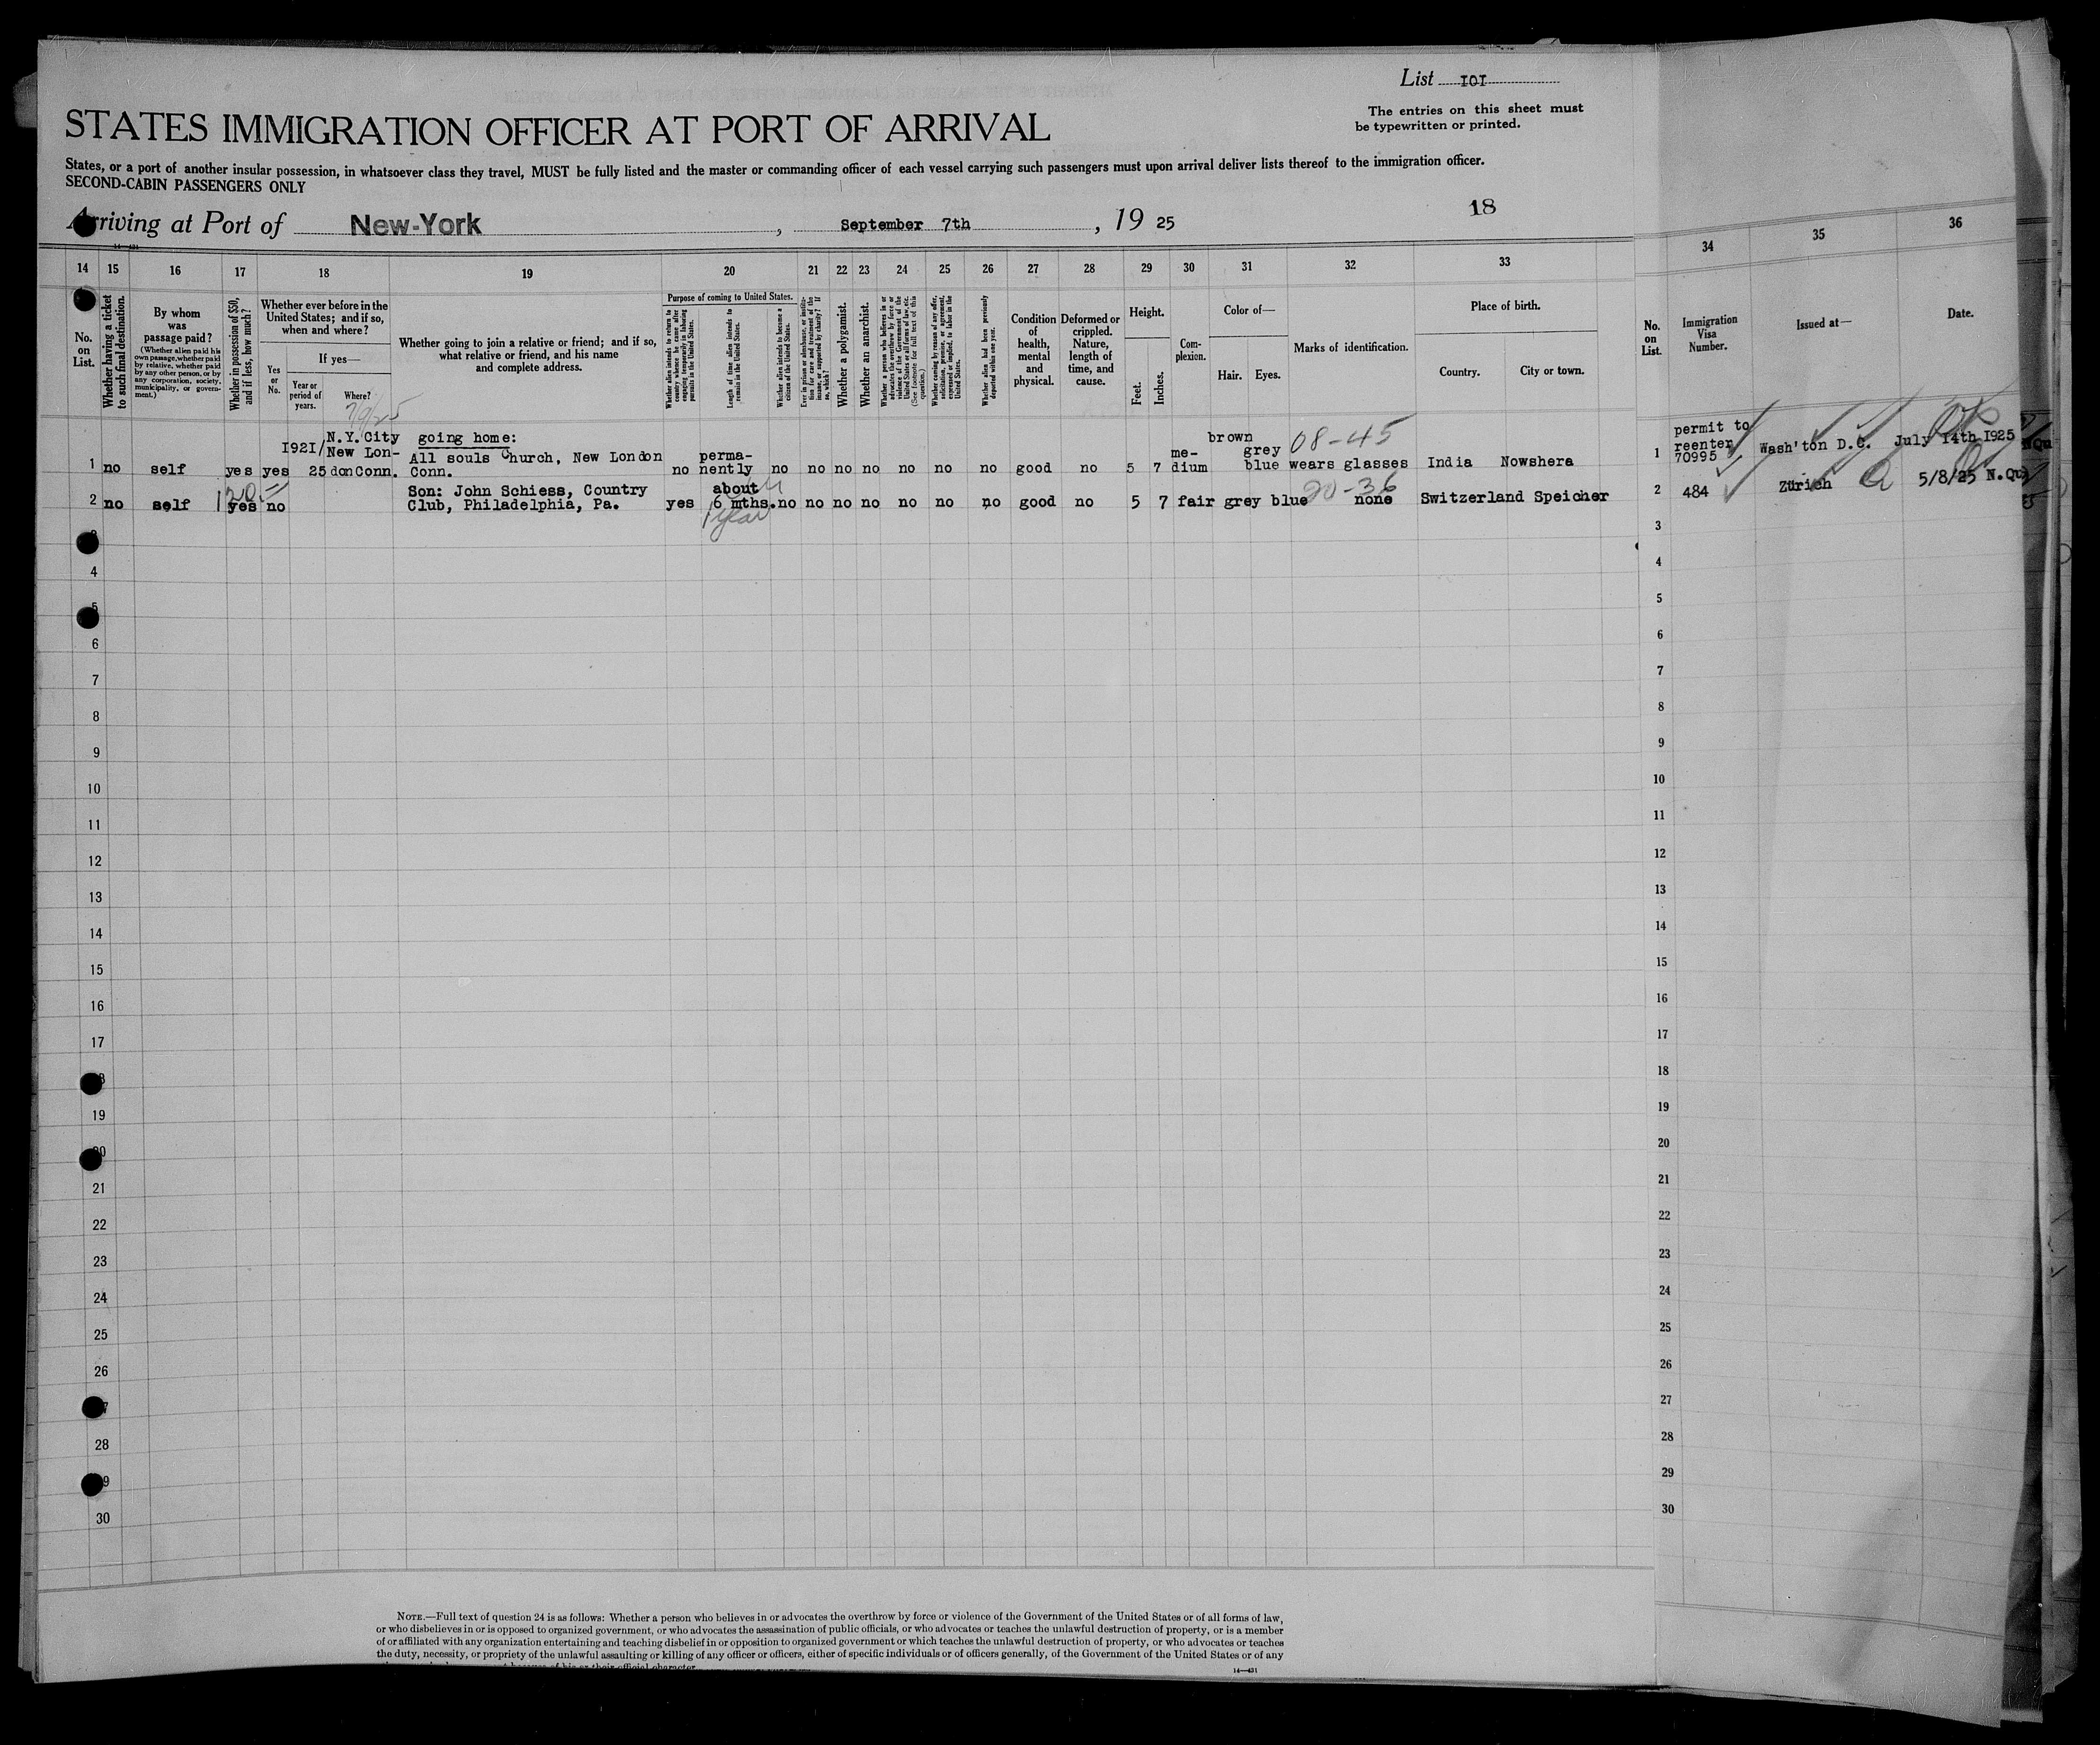 List 101
The entries on this sheet must
be typewritten or printed.
STATES IMMIGRATION OFFICER AT PORT OF ARRIVAL
States, or a port of another insular possession, in whatsoever class they travel, MUST be fully listed and the master or commanding officer of each vessel carrying such passengers must upon arrival deliver lists thereof to the immigration officer.
SECOND-CABIN PASSENGERS ONLY
Arriving at Port of New-York, September 7th, 19 25
18
14 15 16 17 18 19 20 21 22 23 24 25 26 27 28 29 30 31 32 33 34 35 36
No. on List.
Whether having a ticket to such final destination.
By whom was passage paid?
(Whether alien paid his own passage, whether paid by relative, whether paid by any other person, or by any corporation, society, municipality, or government.)
Whether in possession of $50, and if less, how much?
Whether ever before in the United States; and if so, when and where?
Yes or No.
If yes—
Year or period of years.
Where?
Whether going to join a relative or friend; and if so, what relative or friend, and his name and complete address.
Purpose of coming to United States.
Whether alien intends to return to country whence he came after engaging temporarily in laboring pursuits in the United States.
Length of time alien intends to remain in the United States.
Whether alien intends to become a citizen of the United States.
Ever in prison or almshouse, or institution for care and treatment of the insane, or supported by charity? If so, which?
Whether a polygamist.
Whether an anarchist.
Whether a person who believes in or advocates the overthrow by force or violence of the Government of the United States or all forms of law, etc. (See footnote for full text of this question.)
Whether coming by reason of any offer, solicitation, promise, or agreement, expressed or implied, to labor in the United States.
Whether alien had been previously deported within one year.
Condition of health, mental and physical.
Deformed or crippled. Nature, length of time, and cause.
Height.
Feet. Inches.
Complexion.
Color of—
Hair. Eyes.
Marks of identification.
Place of birth.
Country. City or town.
No. on List.
Immigration Visa Number.
Issued at—
Date.
1 no self yes yes 1921/25 N.Y. City/New London Conn. going home: All souls Church, New London Conn. no permanently no no no no no no no good no 5 7 medium brown grey blue 08-45 wears glasses India Nowshera
1 permit to reenter 70995 Wash'ton D.C. July 14th 1925
2 no self 120 yes no Son: John Schiess, Country Club, Philadelphia, Pa. yes about 6 mths. 1 year no no no no no no no good no 5 7 fair grey blue 20-36 none Switzerland Speicher
2 484 Zürich 5/8/25 N.Qu
3
4
5
6
7
8
9
10
11
12
13
14
15
16
17
18
19
20
21
22
23
24
25
26
27
28
29
30
NOTE.—Full text of question 24 is as follows: Whether a person who believes in or advocates the overthrow by force or violence of the Government of the United States or of all forms of law,
or who disbelieves in or is opposed to organized government, or who advocates the assassination of public officials, or who advocates or teaches the unlawful destruction of property, or is a member
of or affiliated with any organization entertaining and teaching disbelief in or opposition to organized government or which teaches the unlawful destruction of property, or who advocates or teaches
the duty, necessity, or propriety of the unlawful assaulting or killing of any officer or officers, either of specific individuals or of officers generally, of the Government of the United States or of any
14—431